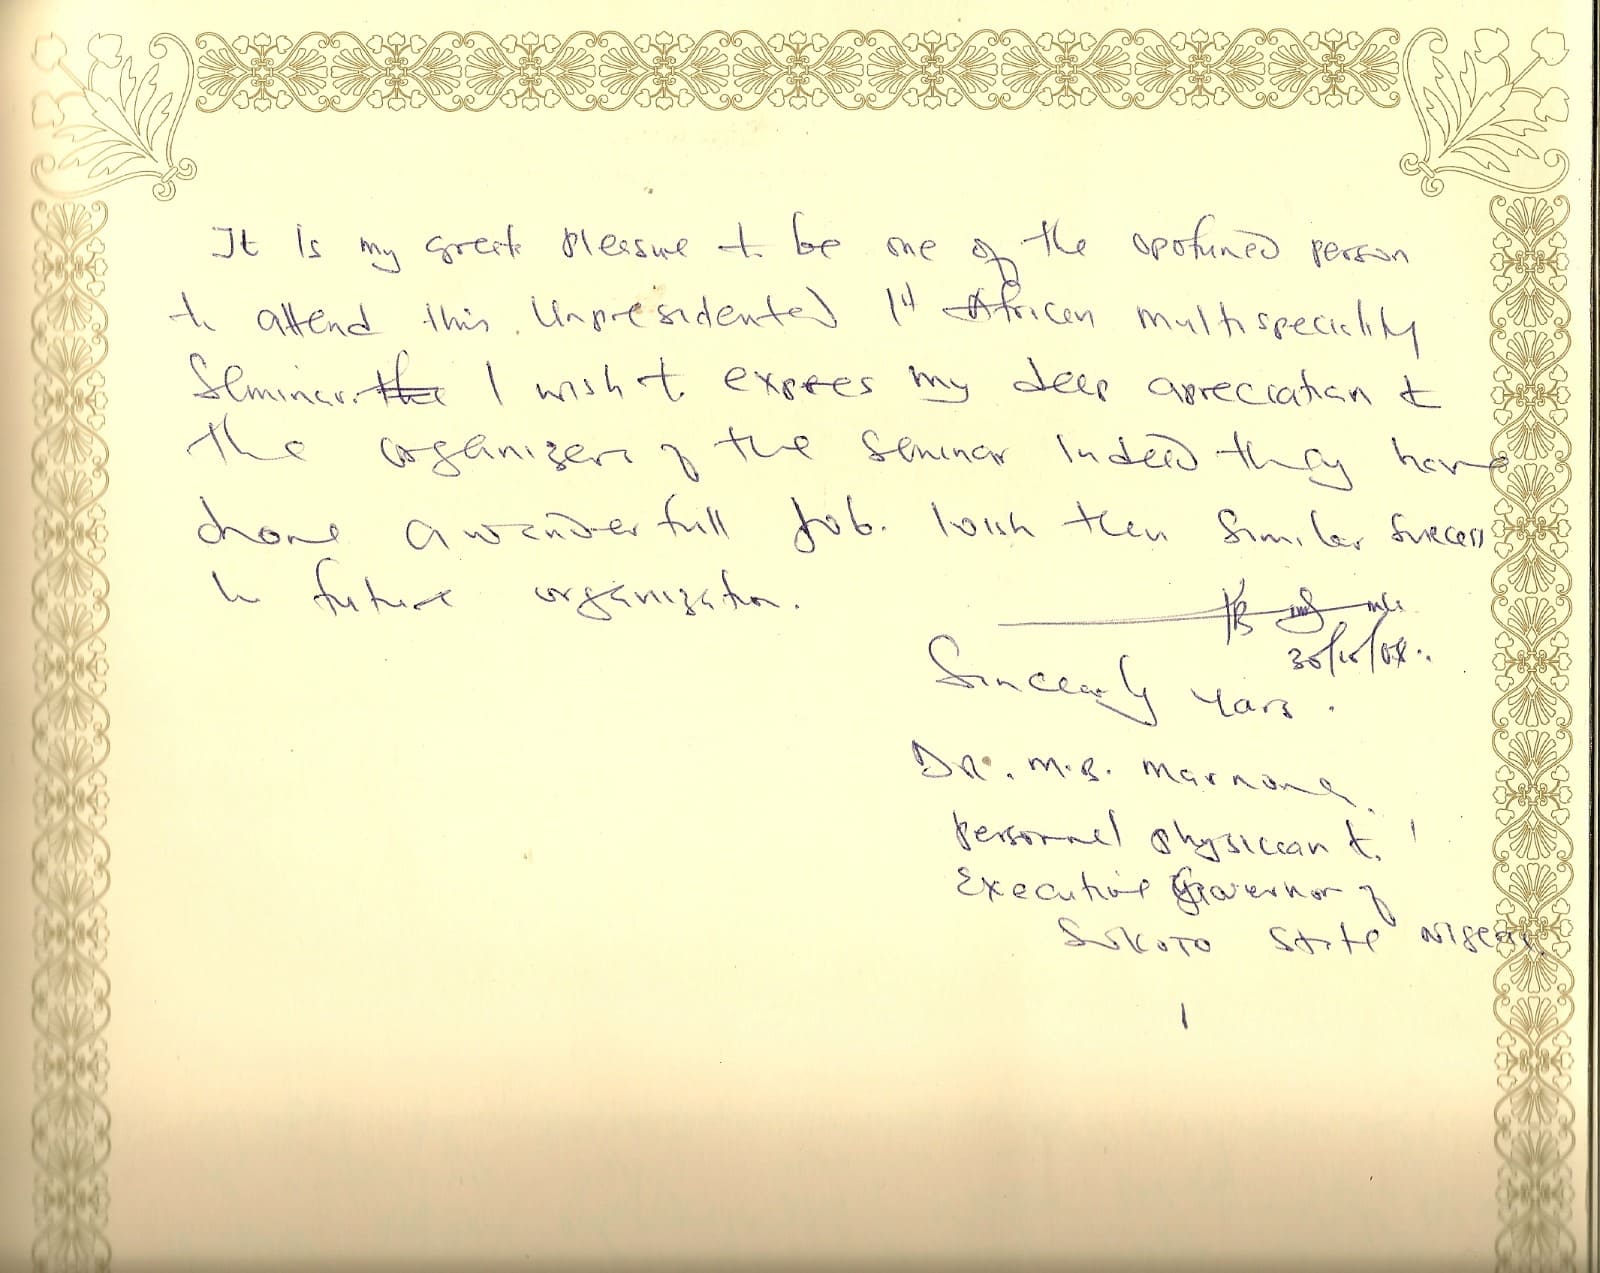 It is my great pleasure to be one of the opotuned person
to attend this Unpresidented 1st African multispeciality
Seminar. the I wish to expres my deep apreciation to
the organizers of the Seminar Indeed they have
done a wonderfull Job. I wish them Similar Success
In future organization.
30/10/08
Sincearly Yours.
DR. M.B. Marnona
personnel physician to
Executive Governor of
SOKOTO State Nigeria